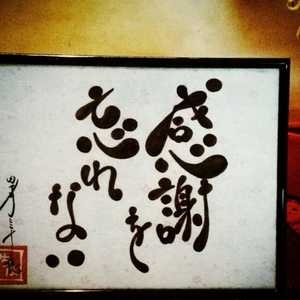 感謝を
忘れない